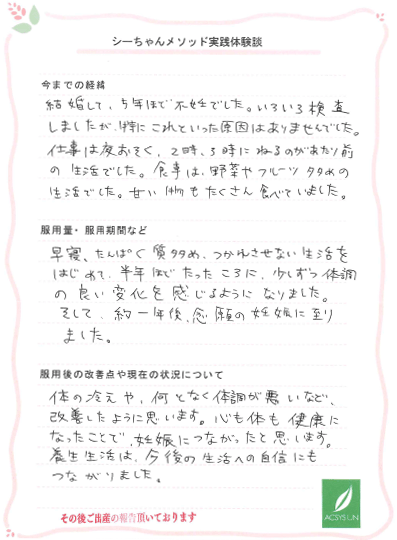 シーちゃんメソッド実践体験談
今までの経緯
結婚して、5年ほど不妊でした。いろいろ検査
しましたが、特にこれといった原因はありませんでした。
仕事は夜おそく、2時、3時にねるのがあたり前
の生活でした。食事は、野菜やフルーツ多めの
生活でした。甘い物もたくさん食べていました。
服用量・服用期間など
早寝、たんぱく質多め、つかれさせない生活を
はじめて、半年ほどたったころに、少しずつ体調
の良い変化を感じるようになりました。
そして、約一年後、念願の妊娠に至り
ました。
服用後の改善点や現在の状況について
体の冷えや、何となく体調が悪いなど、
改善したように思います。心も体も健康に
なったことで、妊娠につながったと思います。
養生生活は、今後の生活への自信にも
つながりました。
その後ご出産の報告頂いております
ACSYSUN